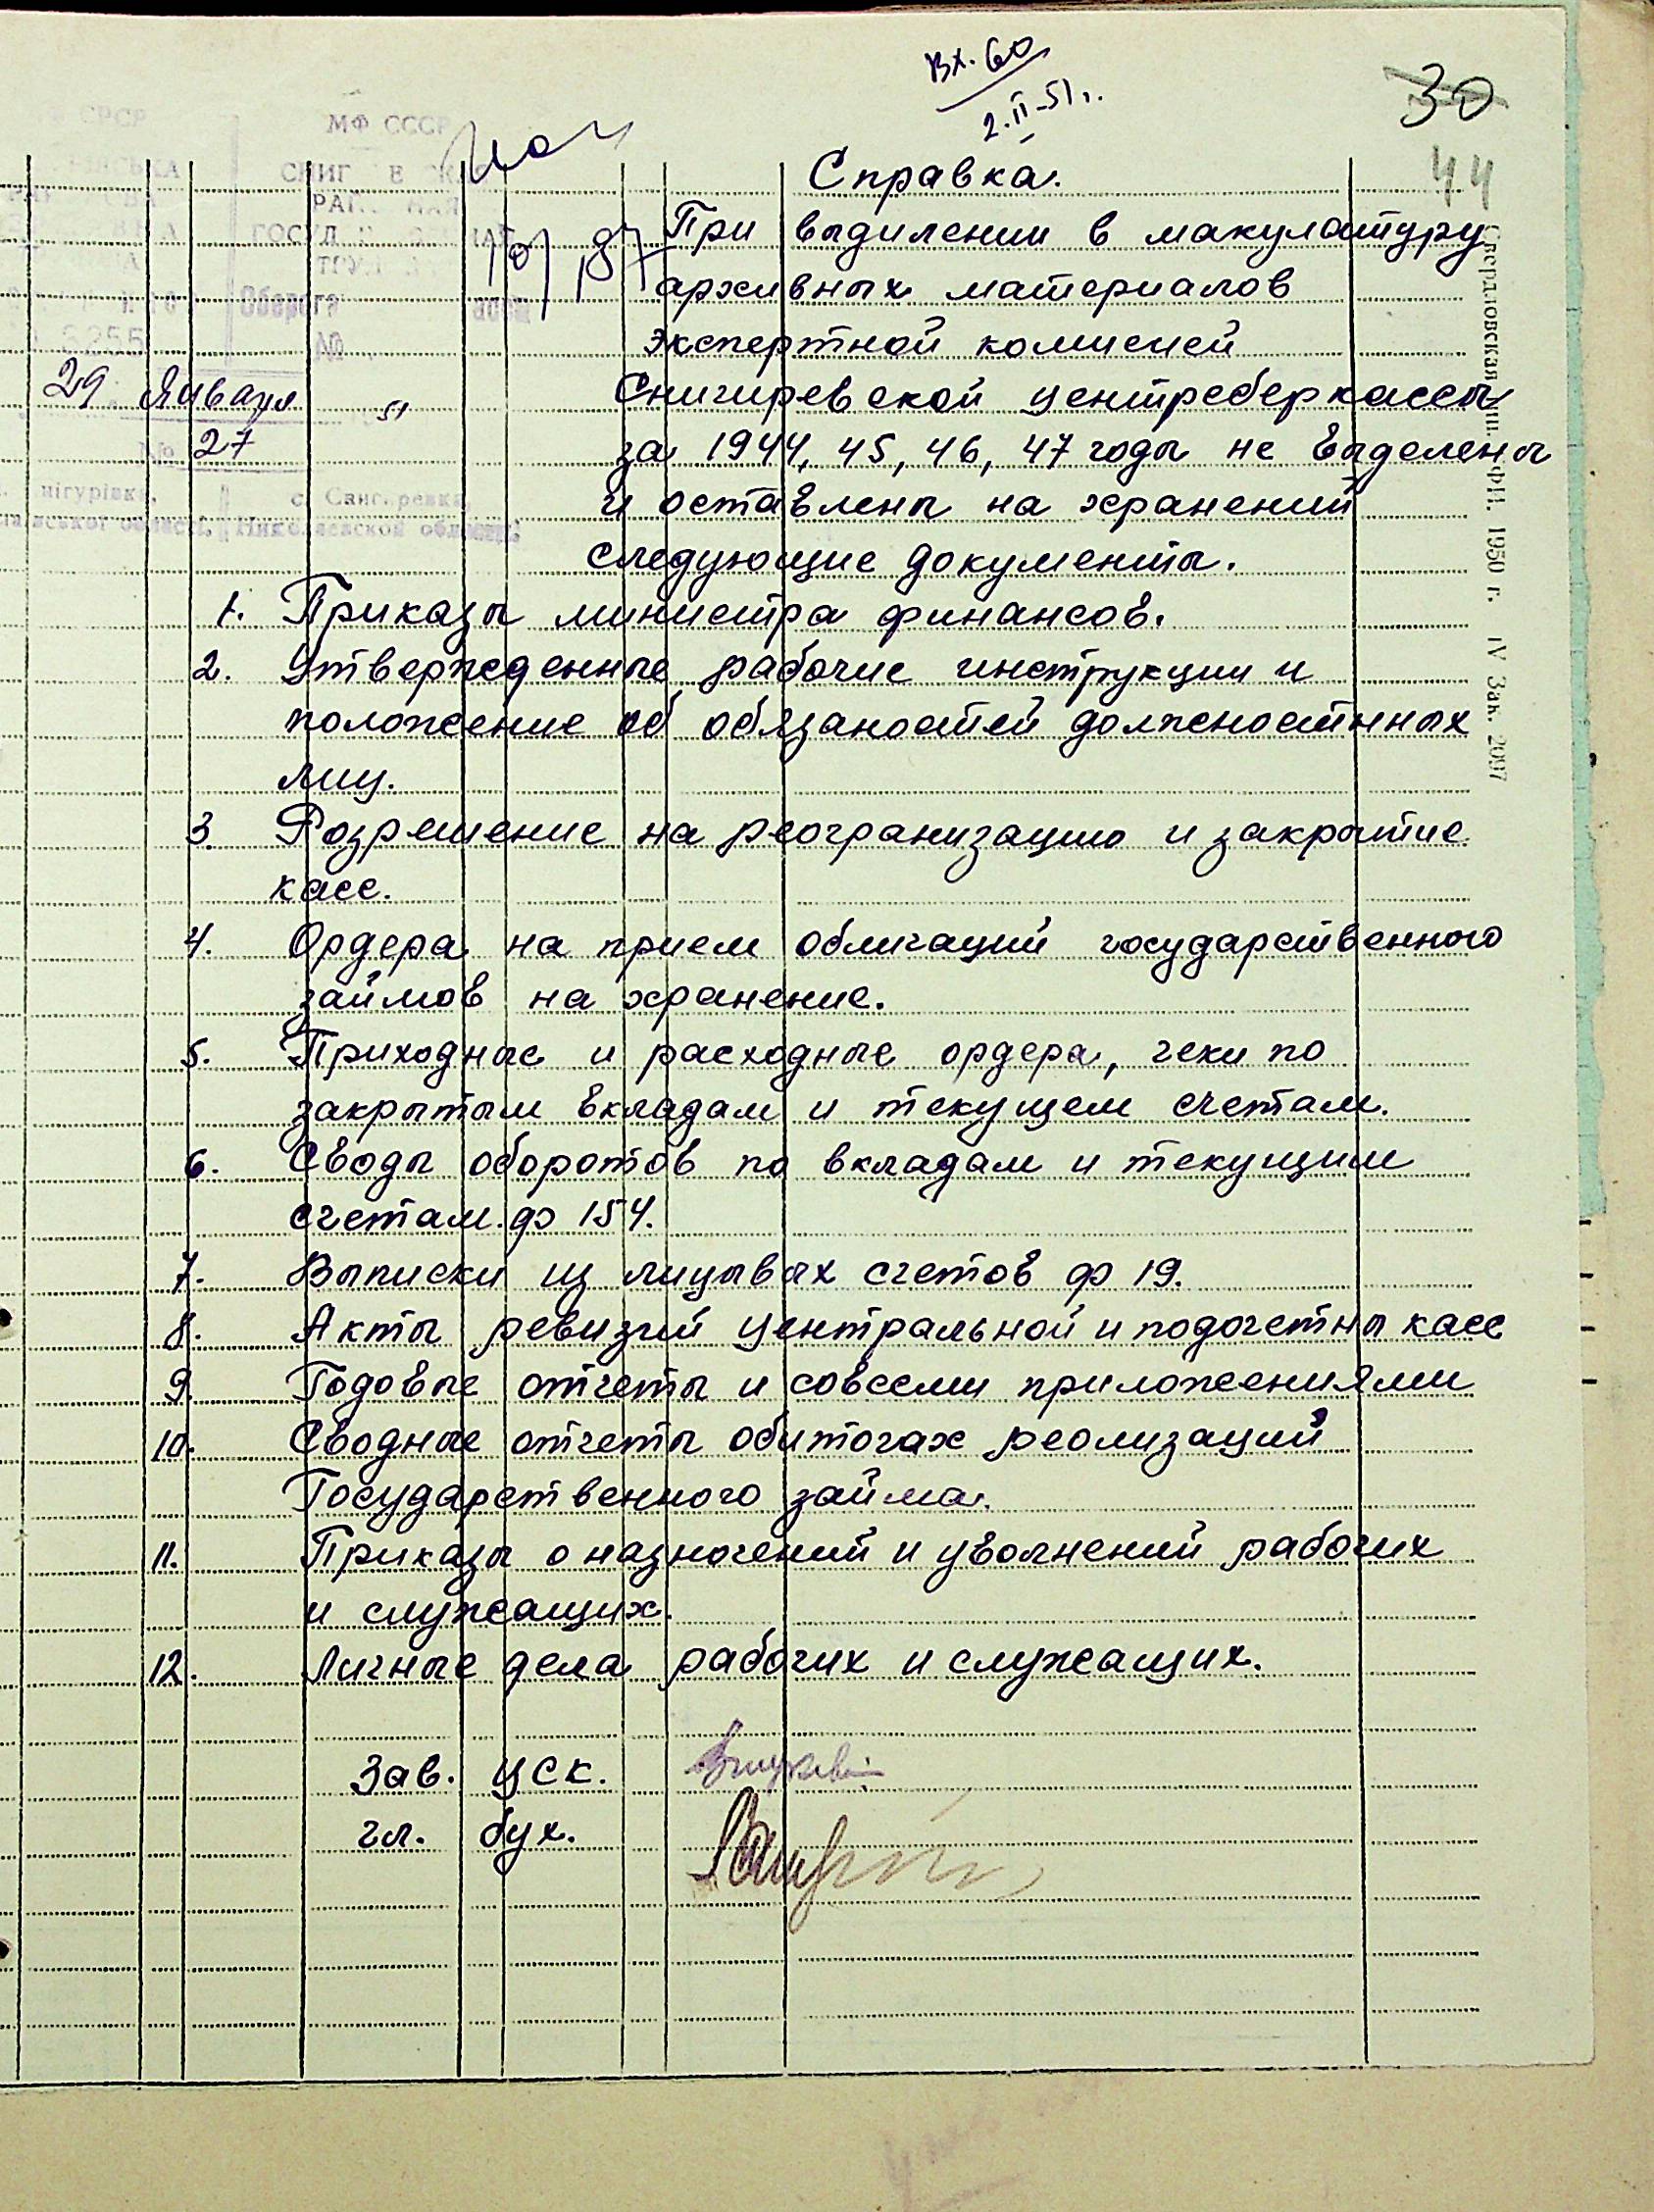 Вх. 60
2.II-51г.
30
44
МФ СССР
Справка.
При выдилении в макулатуру
архивных материалов
экспертной комисией
29 Января 51
Снигиревской центрсберкассы
27
за 1944, 45, 46, 47 годы не выделены
и оставлены на хранений
Николаевской области.
следующие документы.
1. Приказы министра финансов.
2. Утвержденные рабочие инструкции и
положение об обязаностей должностнных
лиц.
3. Розрешение на реогранизацию и закрытие
касс.
4. Ордера на прием облигаций государственного
займов на хранение.
5. Приходные и расходные ордера, чеки по
закрытым вкладам и текущем счетам.
6. Своды оборотов по вкладам и текущим
счетам. ф 154.
7. Выписки из лицывых счетов ф 19.
8. Акты ревизий центральной и подочетны касс
9. Годовые отчеты и совсеми приложениями
10. Сводные отчеты обитогах реолизаций
Государственного займа.
11. Приказы о назночений и уволнений рабочих
и служащих.
12. Личные дела рабочих и служащих.
Зав. ЦСК.
гл. бух.
Свердловская тип. ФИ. 1950 г. IV Зак. 2097